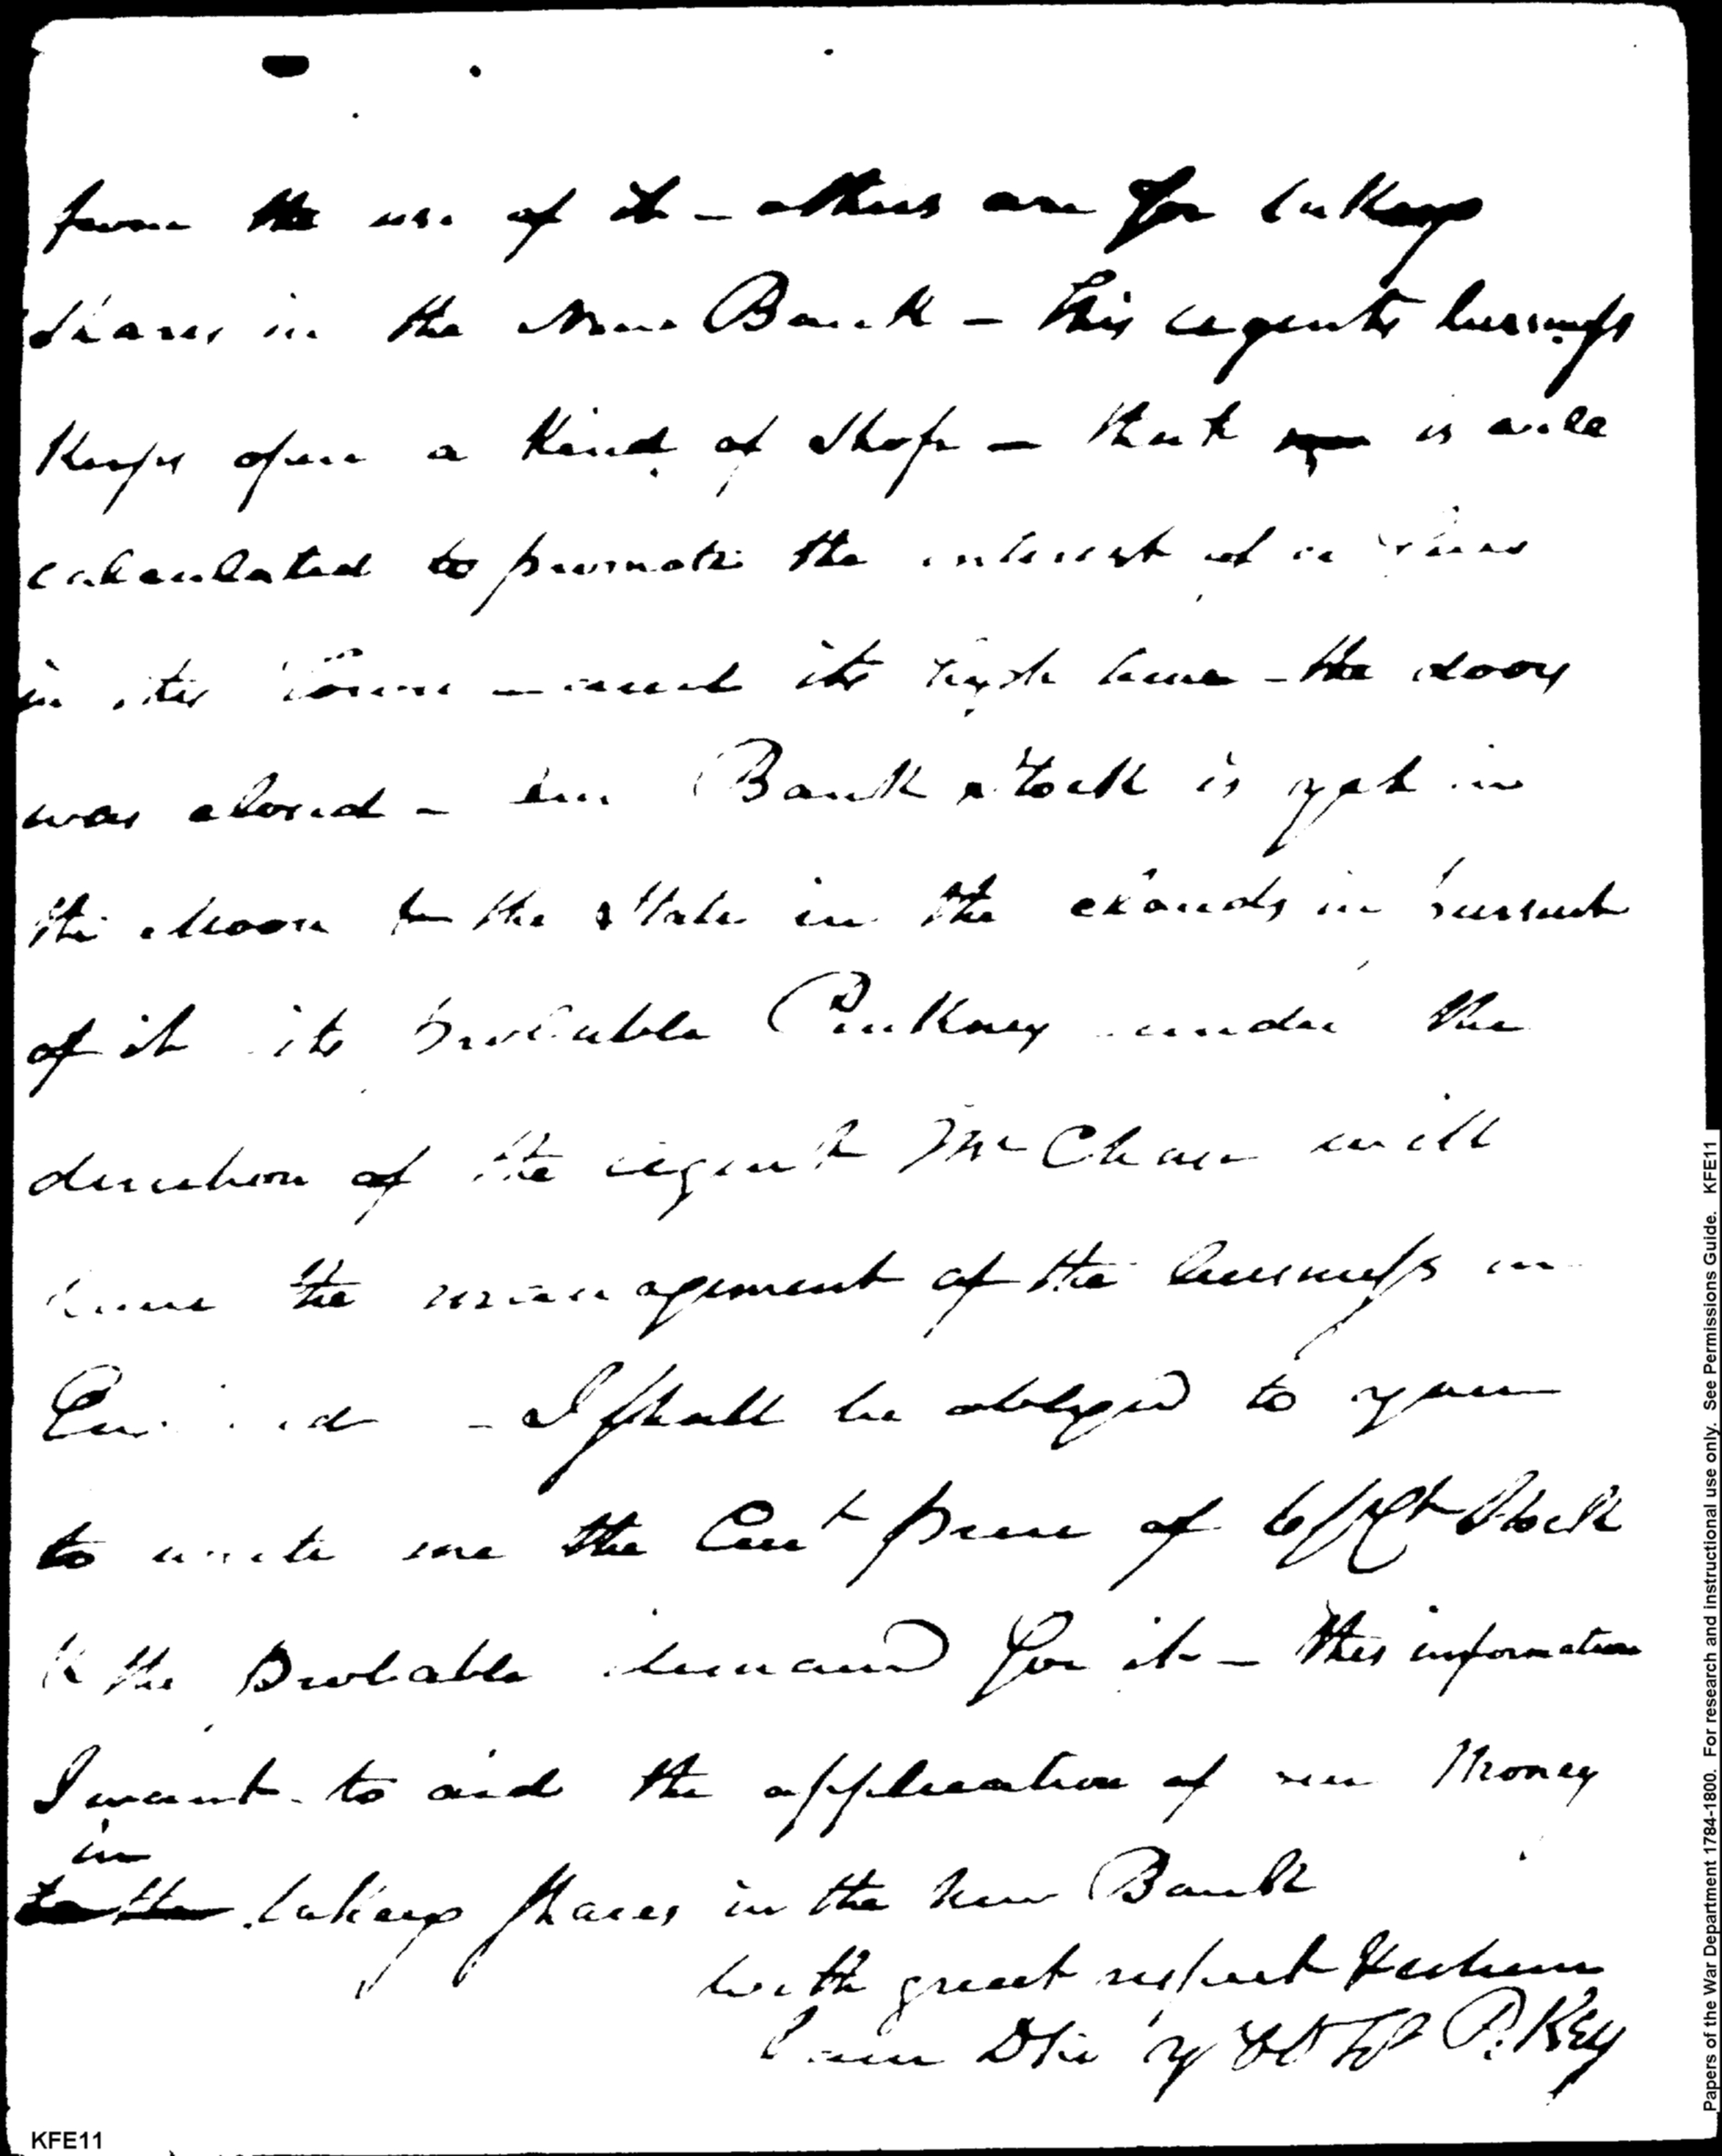 from the use of it - others are for taking
shares in the new Bank - this agents business
keeps open a kind of shop - that is well
calculated to promote the interest of a few
in its Town - and its high time the door
was closed - our Bank stock is yet in
the Moon & the State in the clouds in pursuit
of it its probable Pinkney under the
direction of the agent Mr Chase will
have the management of the business in
England - I shall be obliged to you
to write me the Curt price of 6 pCt Stock
& the Probable demand for it - this information
I want to aid the application of our Money
in
taking shares in the new Bank
with great respect & esteem
I am Dr Sir P. Key
Papers of the War Department 1784-1800. For research and instructional use only. See Permissions Guide. KFE11
KFE11